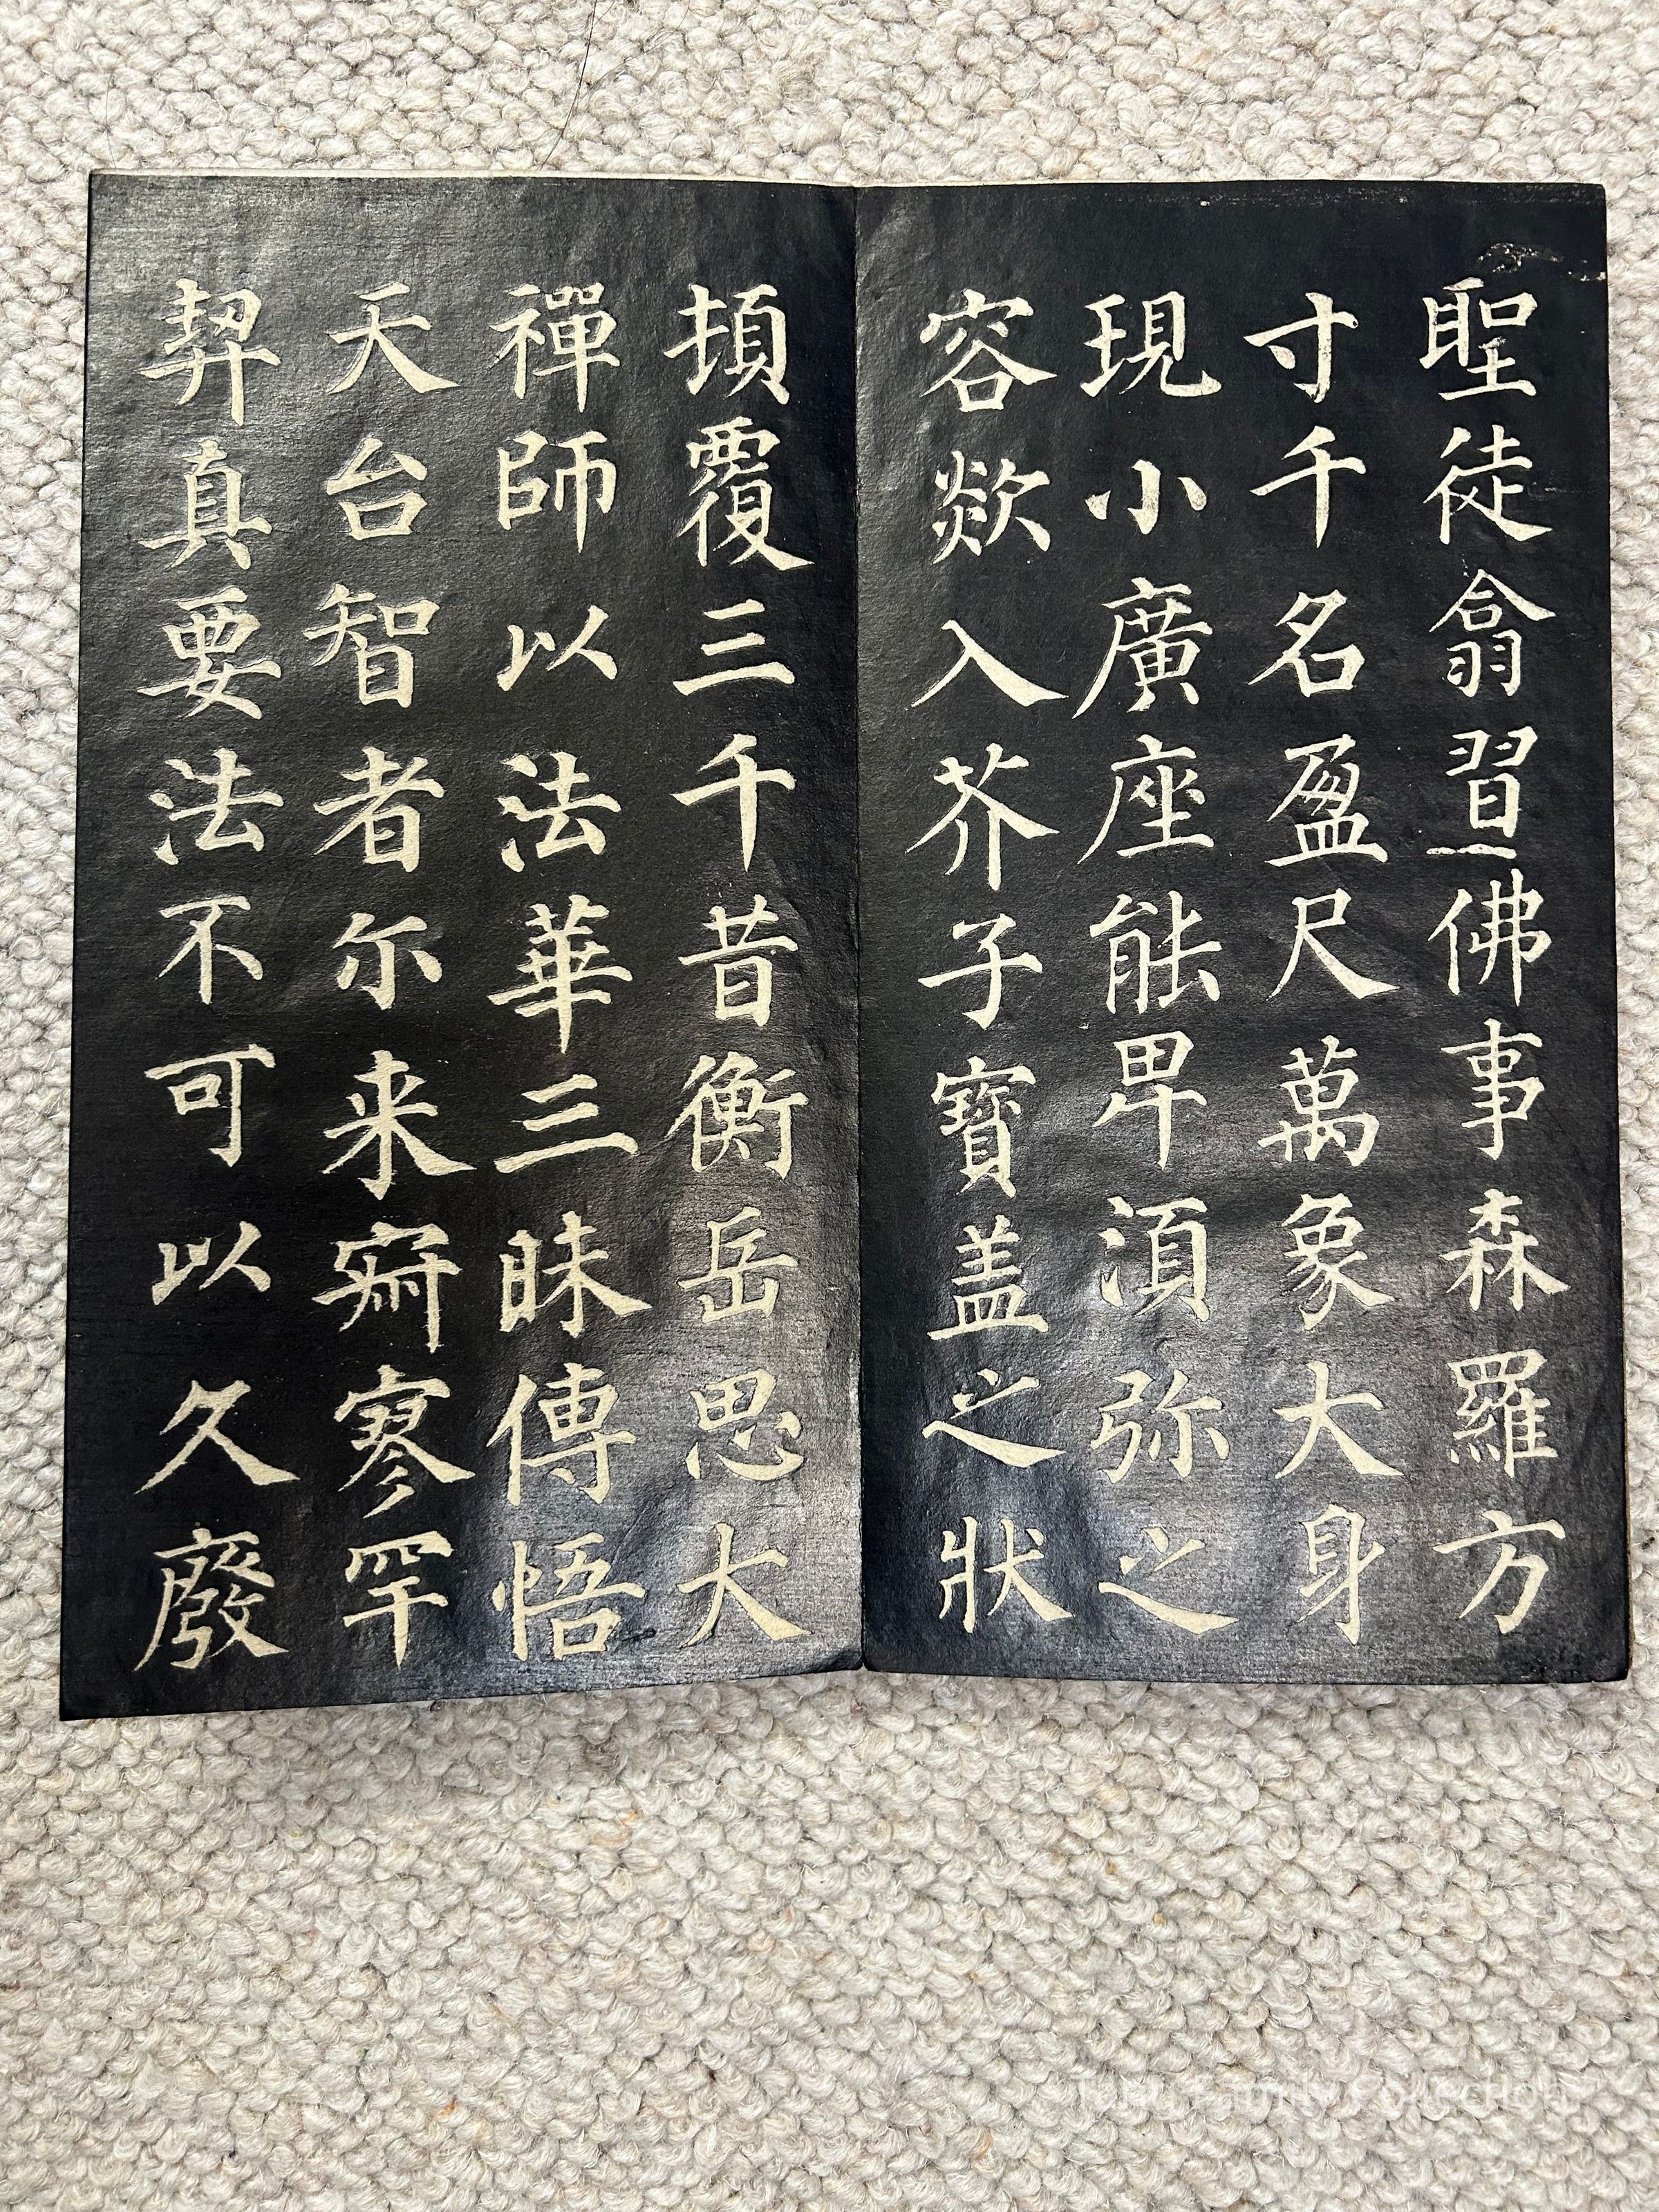 聖徒翕習佛事森羅方
寸千名盈尺萬象大身
現小廣座能卑湏弥之
容欻入芥子寳盖之狀
頓覆三千昔衡岳思大
禪師以法華三昧傳悟
天台智者尓来寂寥罕
契真要法不可以久廢
Tann Family Collection